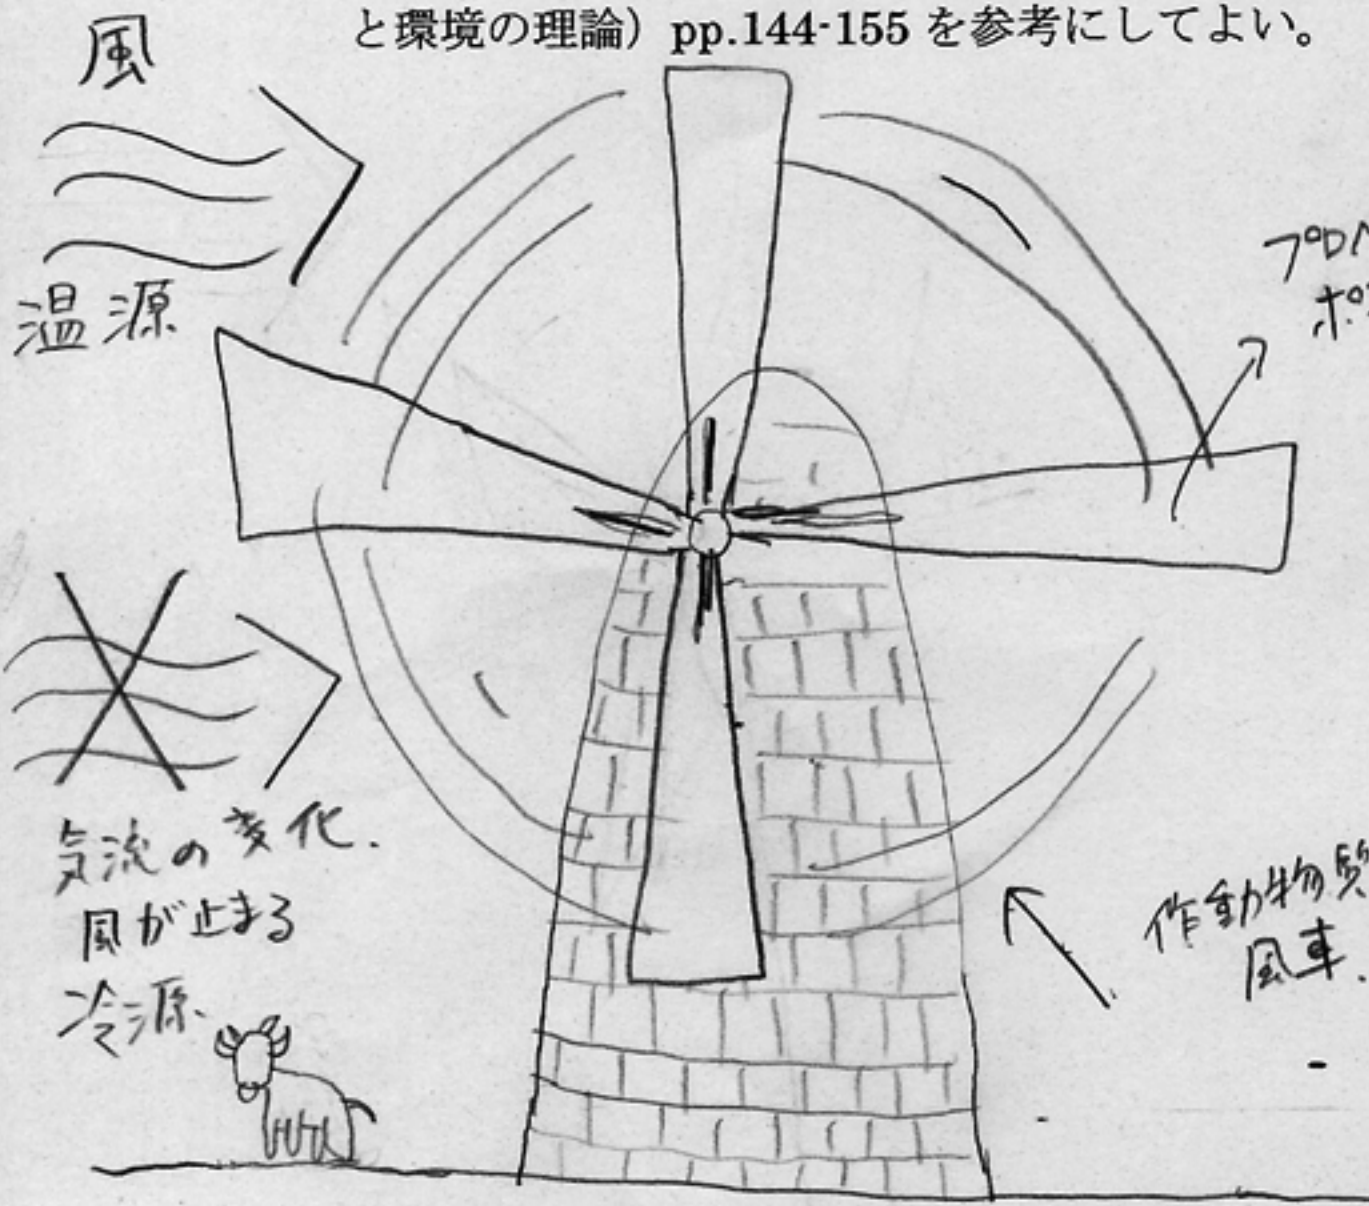 と環境の理論）pp.144-155 を参考にしてよい。
風
温源
プロ
ポ
気流の変化.
風が止まる
冷源.
作動物質
風車.